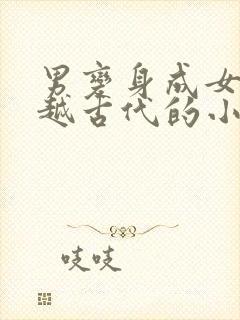 男变身成女
越古代的小
吱吱